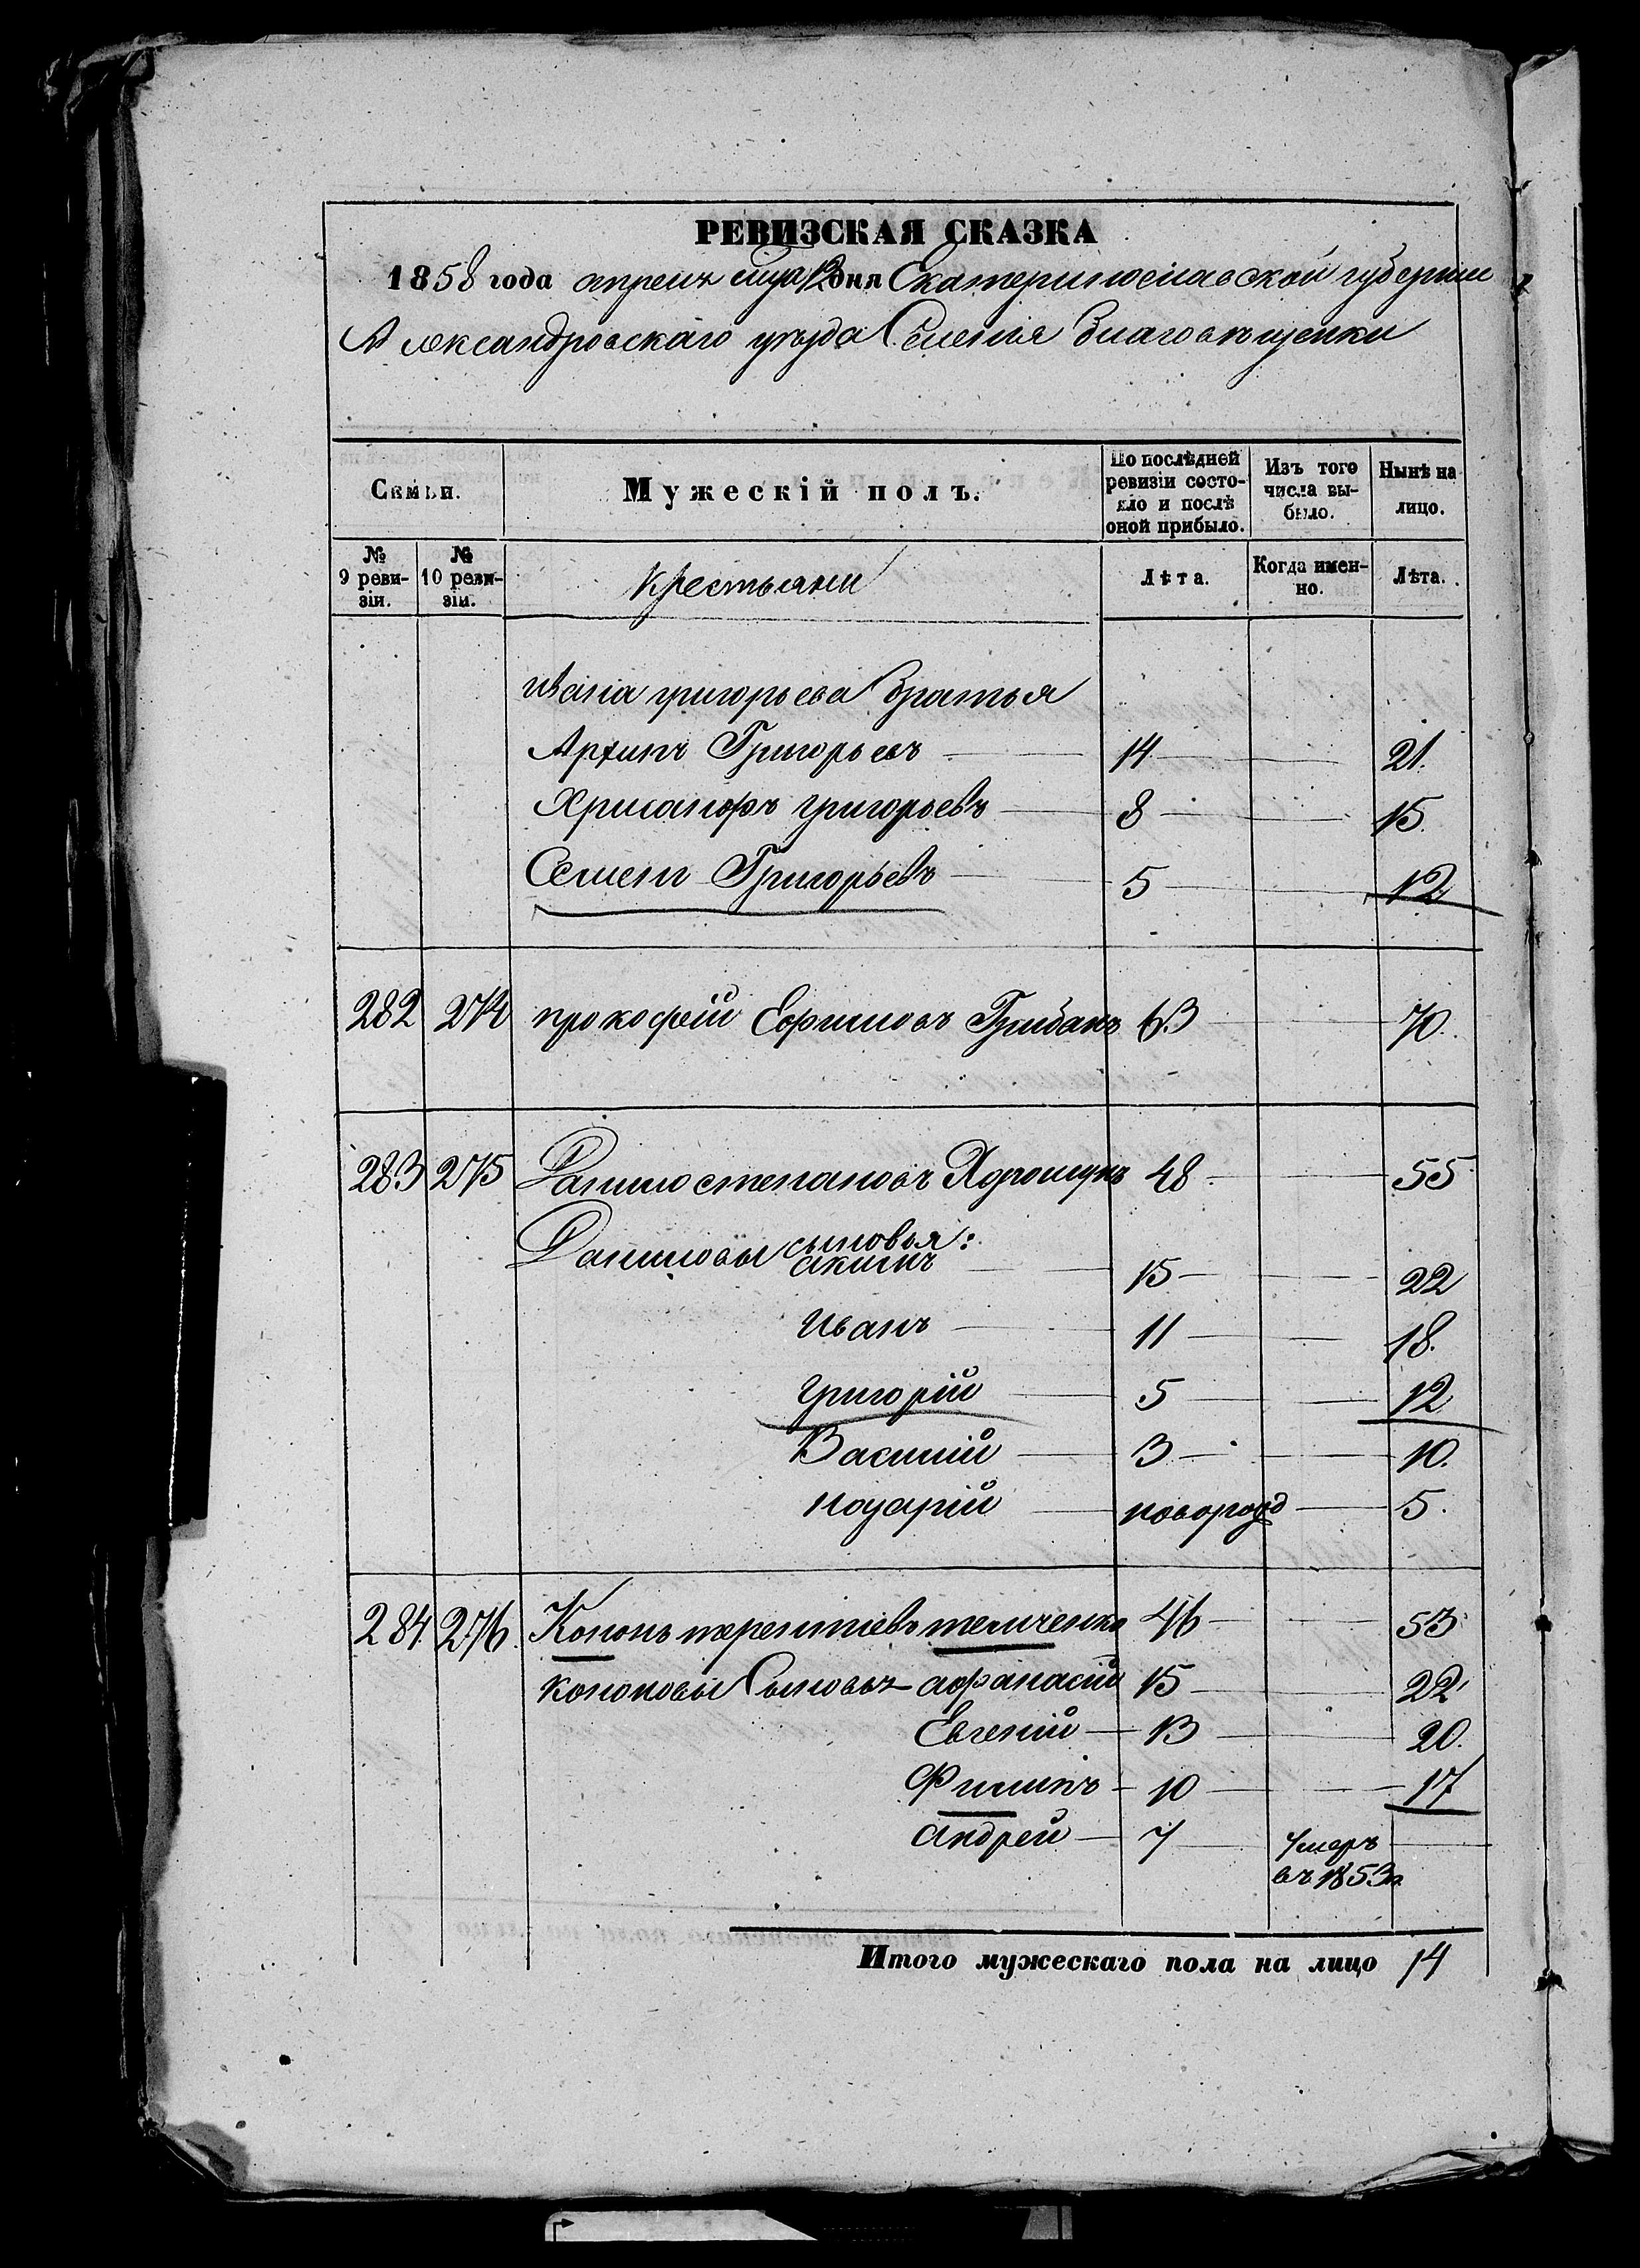 РЕВИЗСКАЯ СКАЗКА
1858 года апреля мца 12 дня Екатеринославской губернии
Александровскаго уезда Селенія Благовещенки
Семьи. Мужескій полъ. По послѣдней ревизіи состояло и послѣ оной прибыло. Изъ того числа выбыло. Нынѣ на лицо.
№ 9 ревизіи. № 10 ревизіи. крестьяни Лѣта. Когда именно. Лѣта.
ивана григорьева братья
Архипъ Григорьевъ 14 21.
Хрисанфъ григорьевъ 8 15.
Семенъ Григорьевъ 5 12
282 274 прокофій Ефримовъ Грибанъ 63 70.
283 275 Данило степановъ 48 55
Даниловы сыновья:
акимъ 15 22
Иванъ 11 18.
григорій 5 12
Василій 3 10.
назарій новорожд 5.
284 276. Кононъ терентіевъ темченко 46 53
кононовы Сыновья афанасій 15 22
Евгеній 13 20.
Филипъ 10 17
андрей 7 умеръ въ 1853г.
Итого мужескаго пола на лицо 14